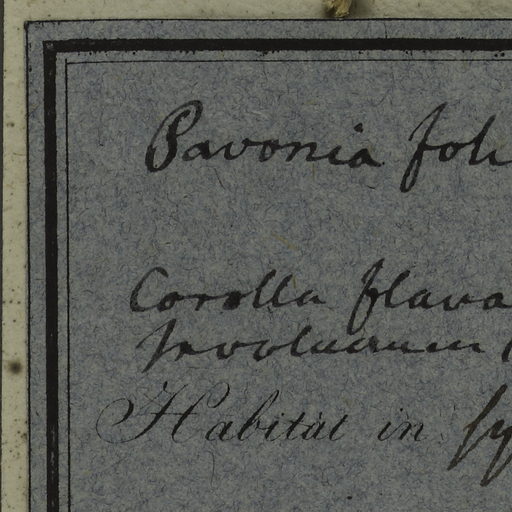 Pavonia foli
Corolla flava
Involucrum
Habitat in sy